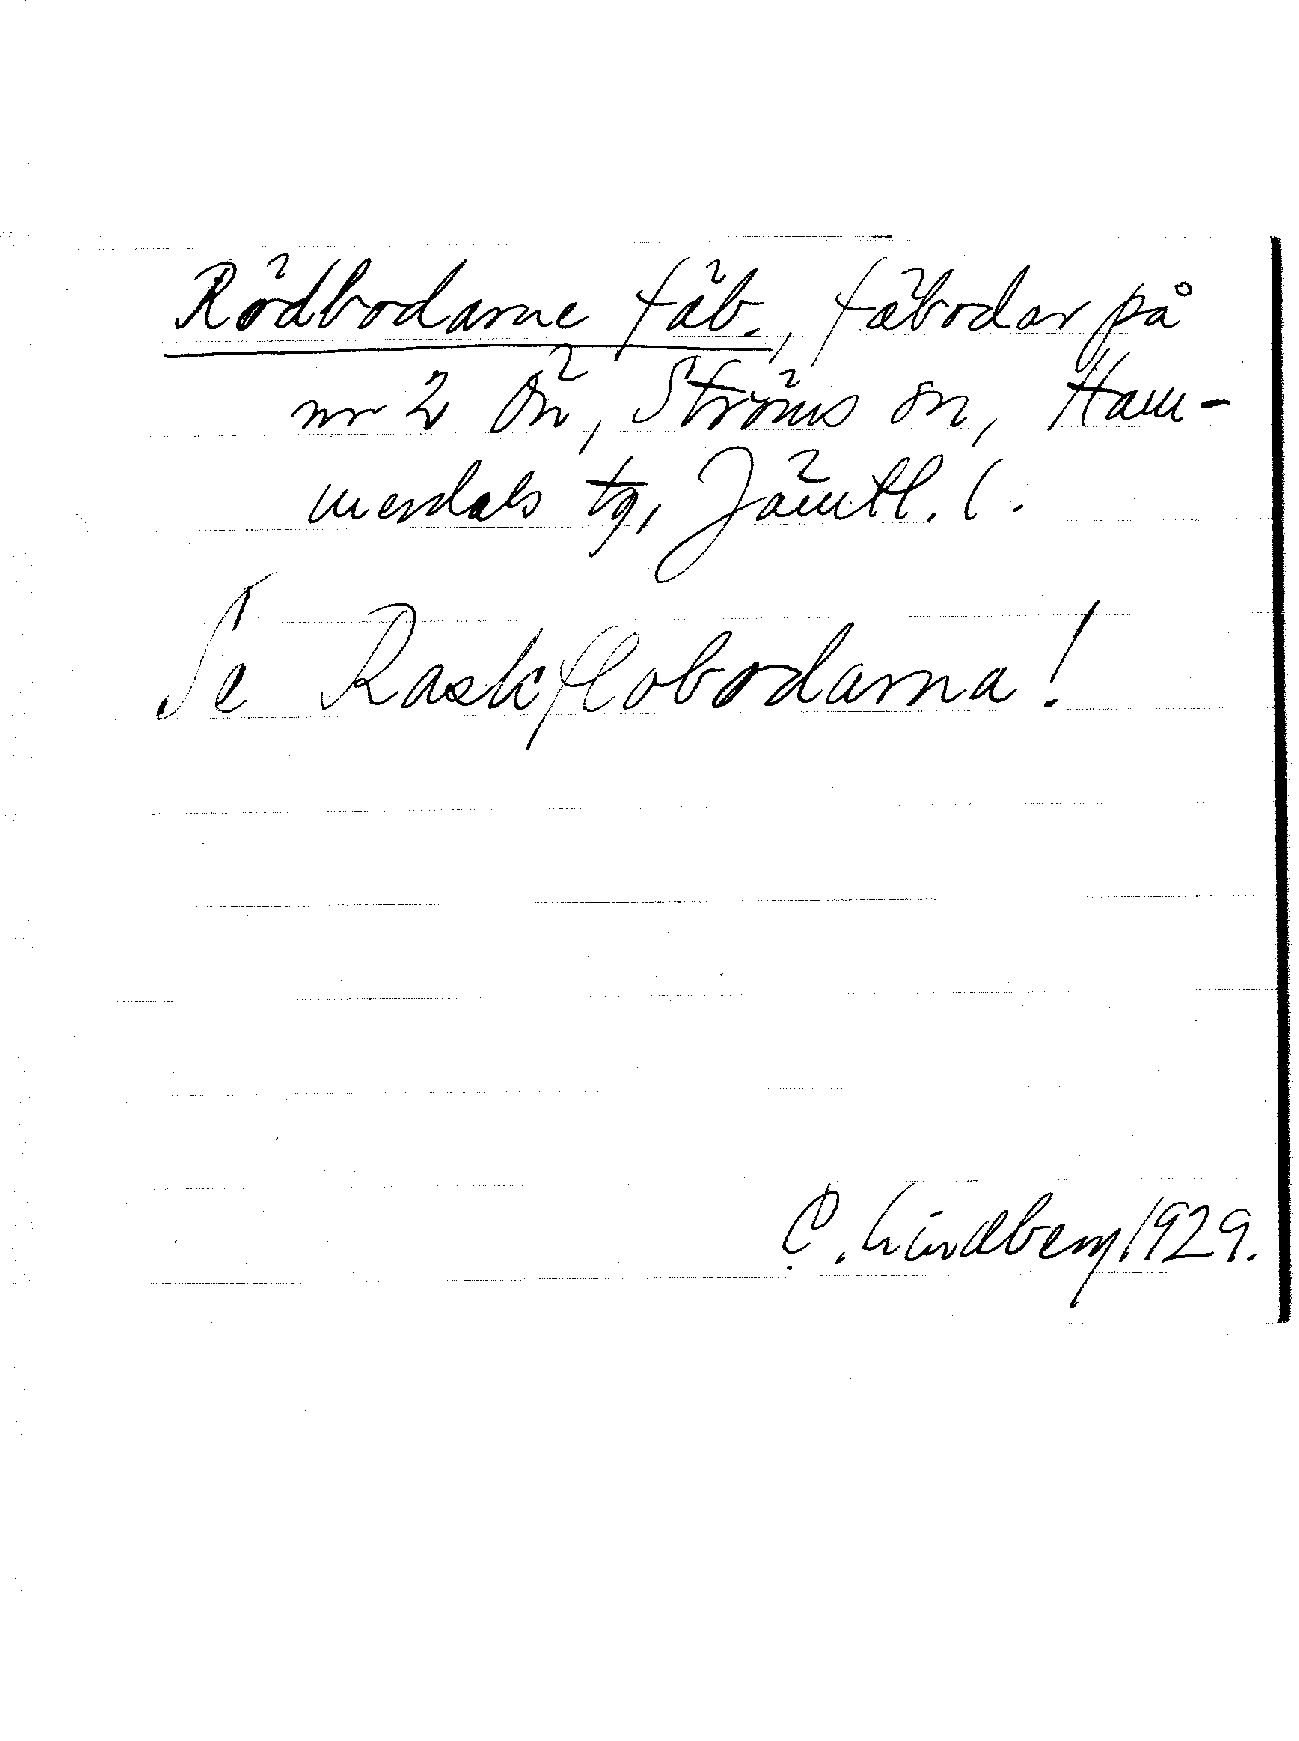 Rödbodarne fäb., fäbodar på
nr 2 Ön, Ströms sn, Ham-
merdals tg, Jämtl. l.
Se Raskflobodarna!
C. Lindberg 1929.